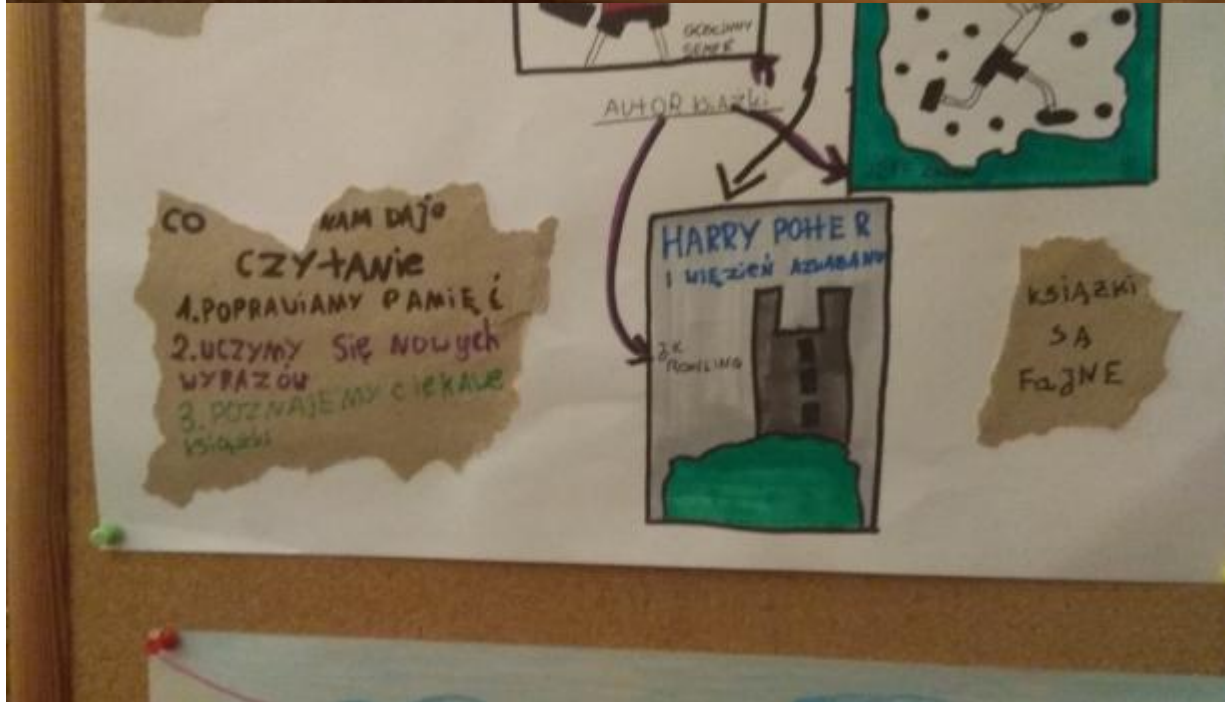 GOSCINNY
SEMPE
AUTOR KSIĄŻKI
CO NAM DAJO
CZYTANIE
1.POPRAWIAMY PAMIĘĆ
2.UCZYMY SIĘ NOWYCH
WYRAZÓW
3.POZNAJEMY CIEKAWE
książki
HARRY POTTER
I WIĘZIEŃ AZKABANU
JK
ROWLING
KSIĄŻKI
SĄ
FAJNE